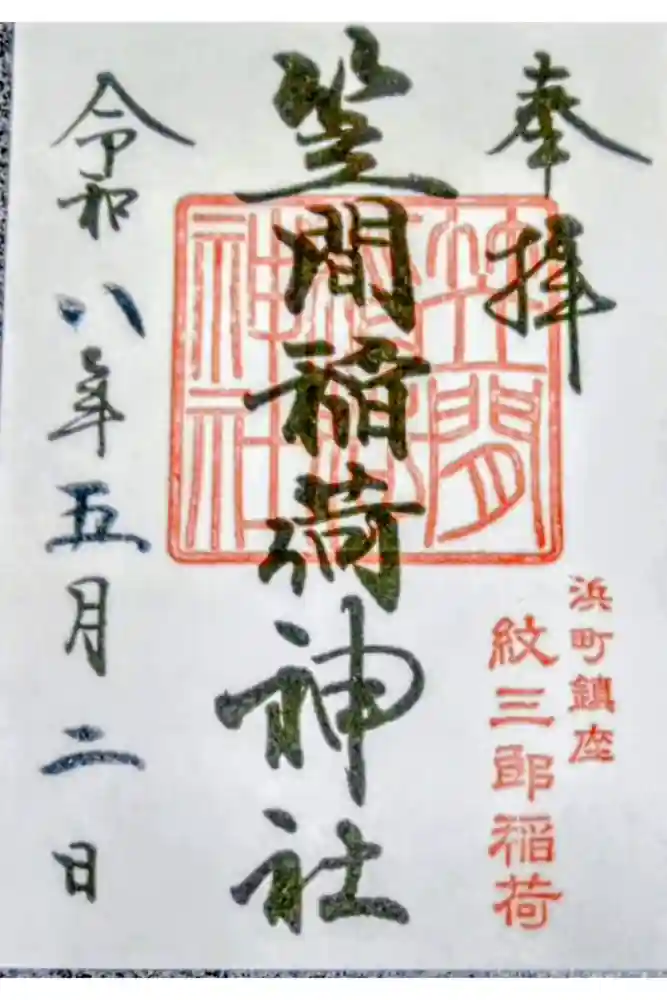 奉拝
浜町鎮座
紋三郎稲荷
笠間稲荷神社
笠間稲荷神社
令和八年五月二日